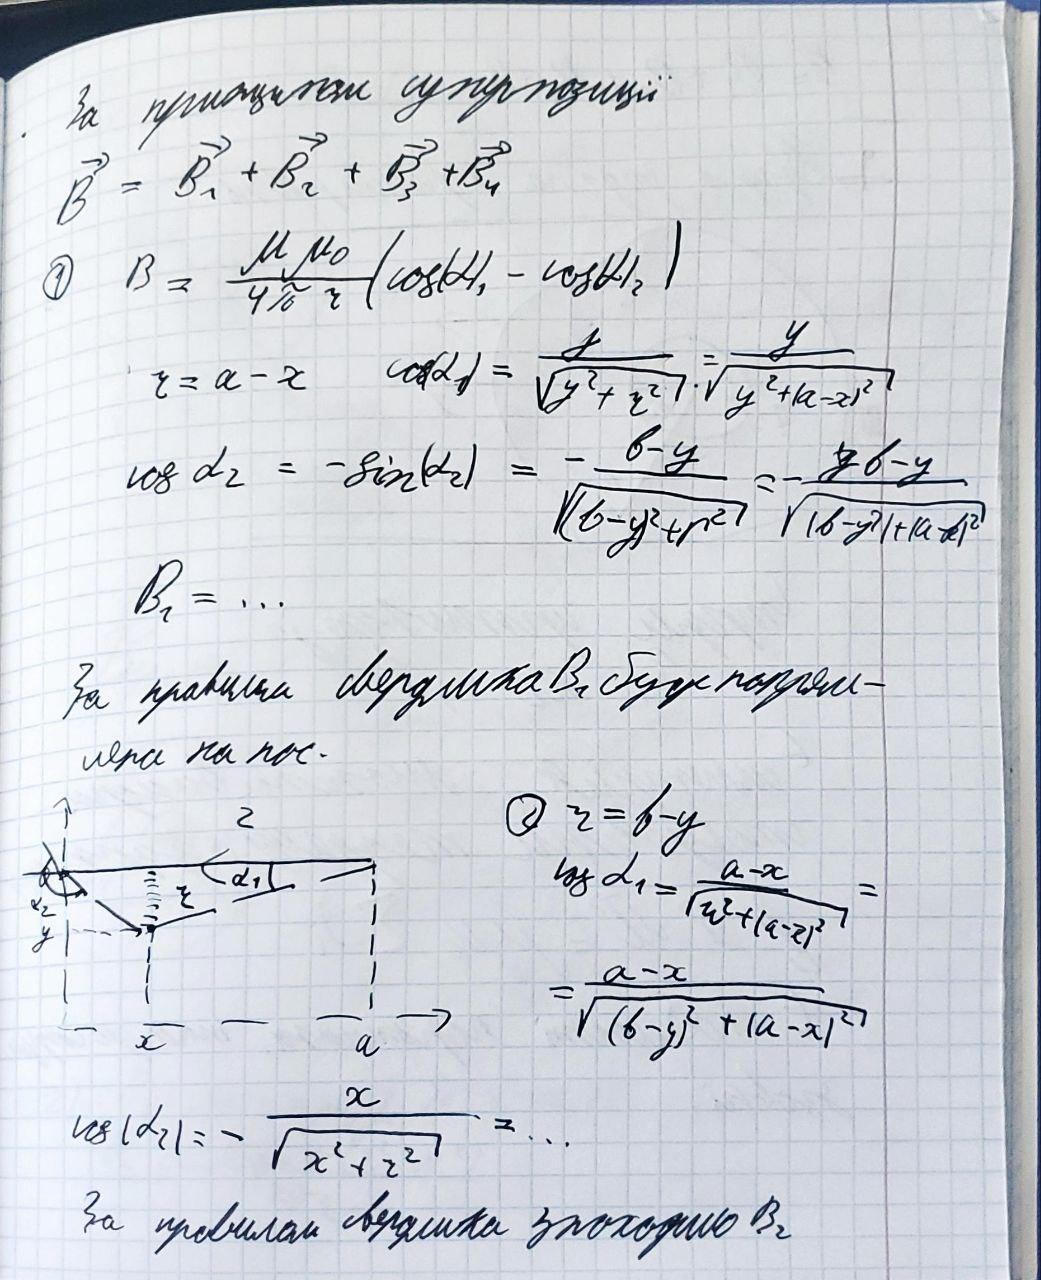 За принципом суперпозиції
B⃗ = B⃗₁ + B⃗₂ + B⃗₃ + B⃗₄
① B = μμ₀/(4πr) (cos(α)₁ − cos(α)₂)
r = a − x cos(α₁) = y/√(y² + r²) = y/√(y² + (a−x)²)
cos α₂ = −sin(α₂) = − (b−y)/√((b−y)² + r²) = − (b−y)/√((b−y)² + (a−x)²)
B₁ = ...
За правилом свердлика B₁ буде напрям-
лена на нас.
2
α₁
r
α₂
y
x a
② r = b−y
cos α₁ = (a−x)/√(r² + (a−x)²) =
= (a−x)/√((b−y)² + (a−x)²)
cos(α₂) = − x/√(x² + r²) = ...
За правилом свердлика знаходимо B₂